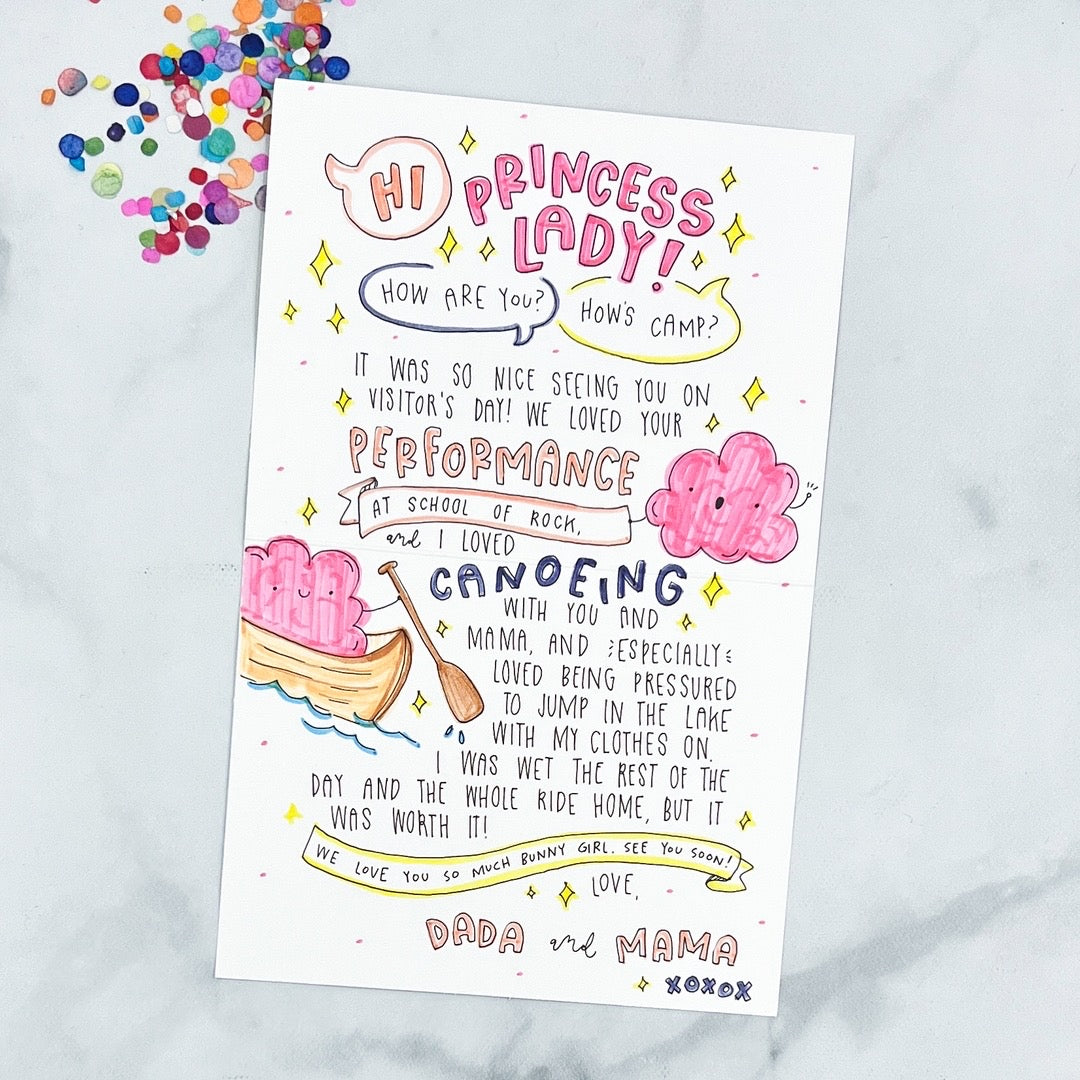 HI
PRINCESS
LADY!
HOW ARE YOU?
HOW'S CAMP?
IT WAS SO NICE SEEING YOU ON
VISITOR'S DAY! WE LOVED YOUR
PERFORMANCE
AT SCHOOL OF ROCK,
and I LOVED
CANOEING
WITH YOU AND
MAMA, AND ESPECIALLY
LOVED BEING PRESSURED
TO JUMP IN THE LAKE
WITH MY CLOTHES ON.
I WAS WET THE REST OF THE
DAY AND THE WHOLE RIDE HOME, BUT IT
WAS WORTH IT!
WE LOVE YOU SO MUCH BUNNY GIRL. SEE YOU SOON!
LOVE,
DADA and MAMA
XOXOX